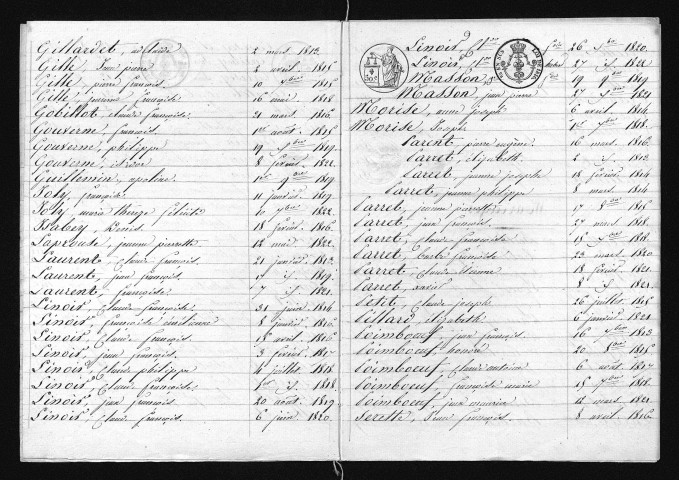 Gillardet, adelaide 2 mars 1813.
Gille, Jean pierre 3 avril 1815
Gille, pierre françois 10 1815
Gille, jeanne françoise 16 mai 1818
Gobillot, claude françoise 31 mars 1816
Gouverne, françois 1er août 1815
Gouverne, philippe 19 1819.
Gouverne, 8 février 1822.
Guillemin, apoline 1er 9bre 1819
Joly, françoise 11 janvier 1819.
Joly, marie thérèse félicité 10 1822.
Isabey, Denis 18 février 1816.
Laproute, jeanne pierrette 12 mai 1822.
Laurent, claude françois 21 janvier 1813.
Laurent, jean françois 1819.
Laurent, françoise 7 id 1821.
Linois, Claude françoise 31 juin 1814
Linois, françoise 8 janvier 1816
Linois, Claude françois 18 avril 1816
Linois, jean françois 3 février 1817
Linois, Claude philippe 4 juillet 1818.
Linois, Claude françoise 1er id 1818.
Linois, jean françois 20 août 1819
Linois, Claude françois 6 juin 1820.
Linois, 26 1820.
Linois, 27 id 1822
Masson, 19 9bre 1819
Masson, jean pierre 27 1821
Morise, anne joseph 6 avril 1814.
Morise, Joseph 1er 1818.
Parent, pierre eugène 16 mars 1816.
Parret, elizabeth 2 id 1813
Parret, jeanne joseph 18 février 1814
Parret, jeanne philippe 8 mars 1814
Parret, jeanne pierrette 17 8bre 1815
Parret, jean françois 27 mars 1818.
Parret, claude françoise 15 1818.
Parret, françoise 23 mars 1820
Parret, claude étienne 18 février 1821.
Parret, xavier 8 id 1821
Petit, claude joseph 26 juillet 1815
Pillard, elizabeth 6 janvier 1821
Poimboeuf, jean françois 16 1813
Poimboeuf, honoré 20 1815
Poimboeuf, claude antoine 6 août 1817
Poimboeuf, françoise marie 15 7bre 1818.
Poimboeuf, jean maurice 12 mars 1821.
Perette, Jean françois. 8 avril 1816